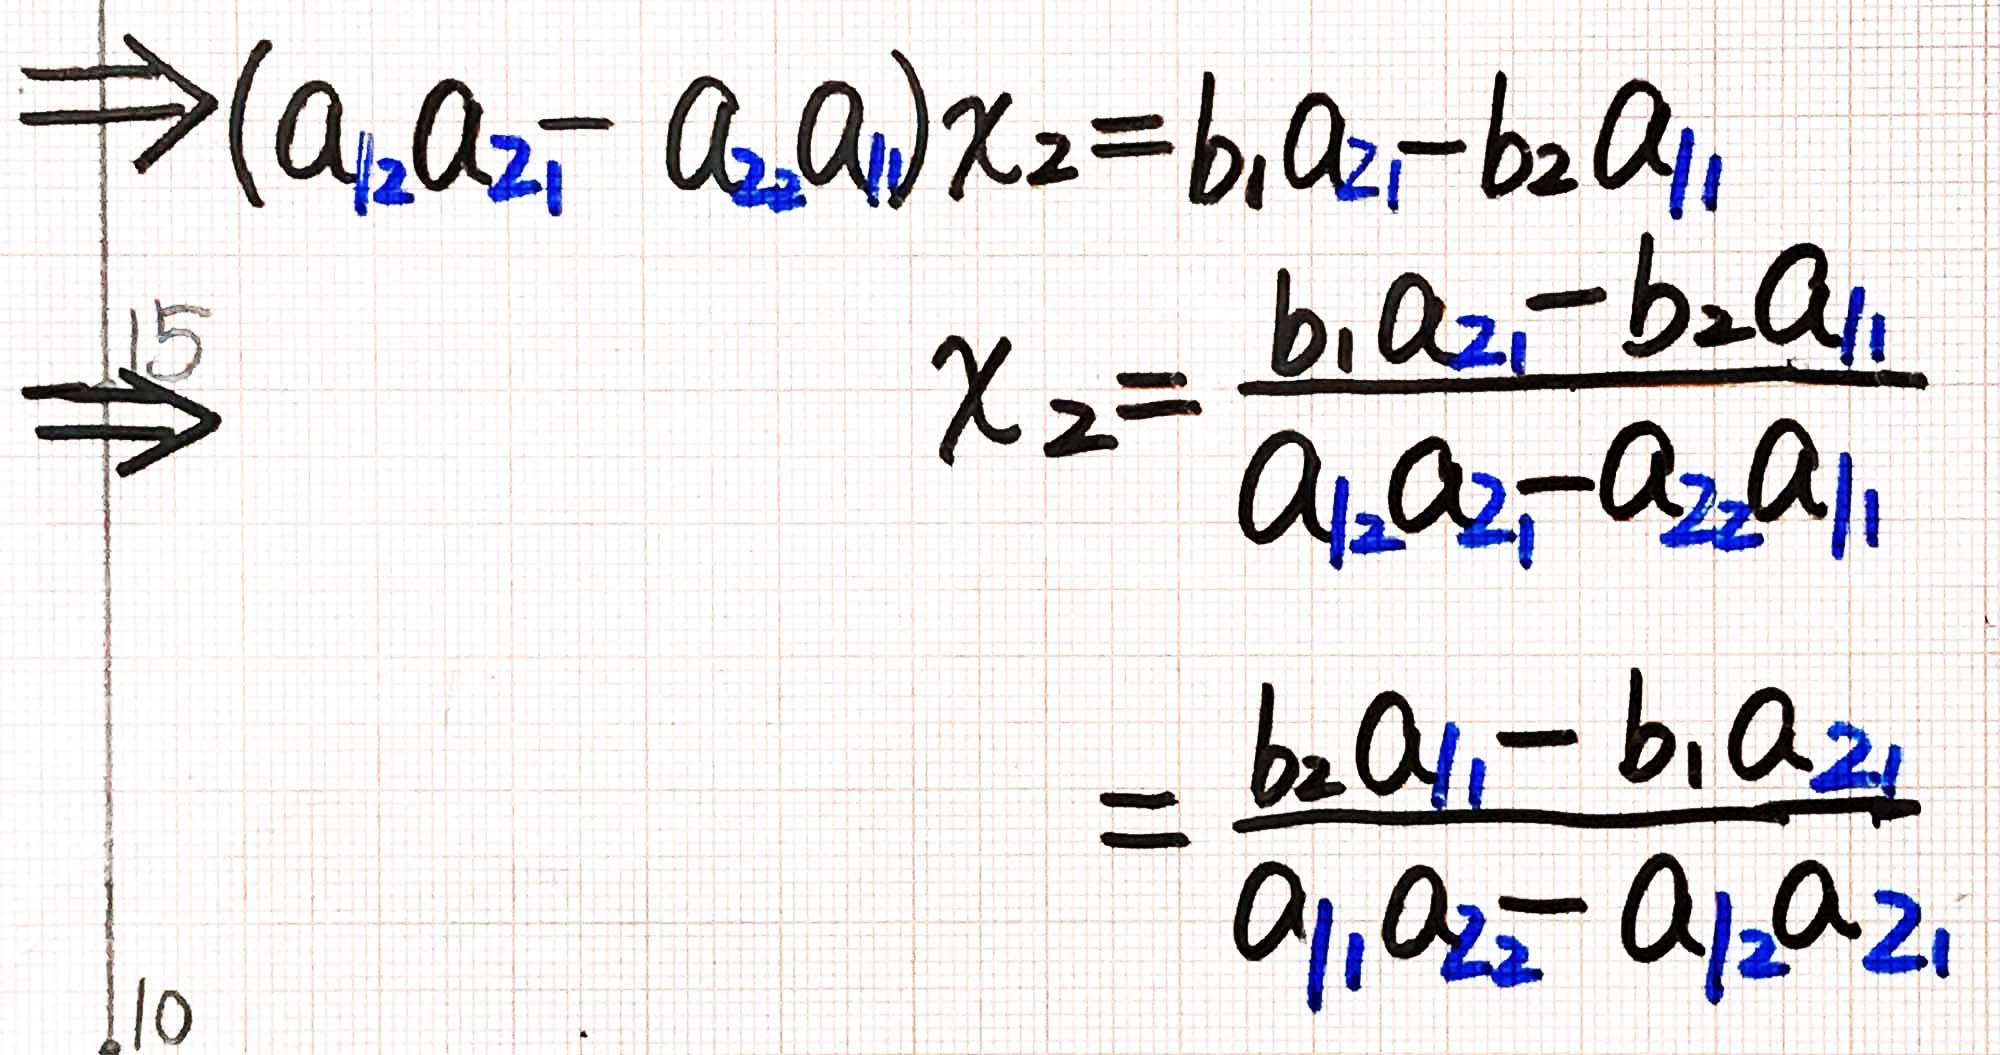 ⇒(a₁₂a₂₁ − a₂₂a₁₁)x₂=b₁a₂₁−b₂a₁₁
15
⇒ x₂= (b₁a₂₁−b₂a₁₁)/(a₁₂a₂₁−a₂₂a₁₁)
= (b₂a₁₁− b₁a₂₁)/(a₁₁a₂₂− a₁₂a₂₁)
10